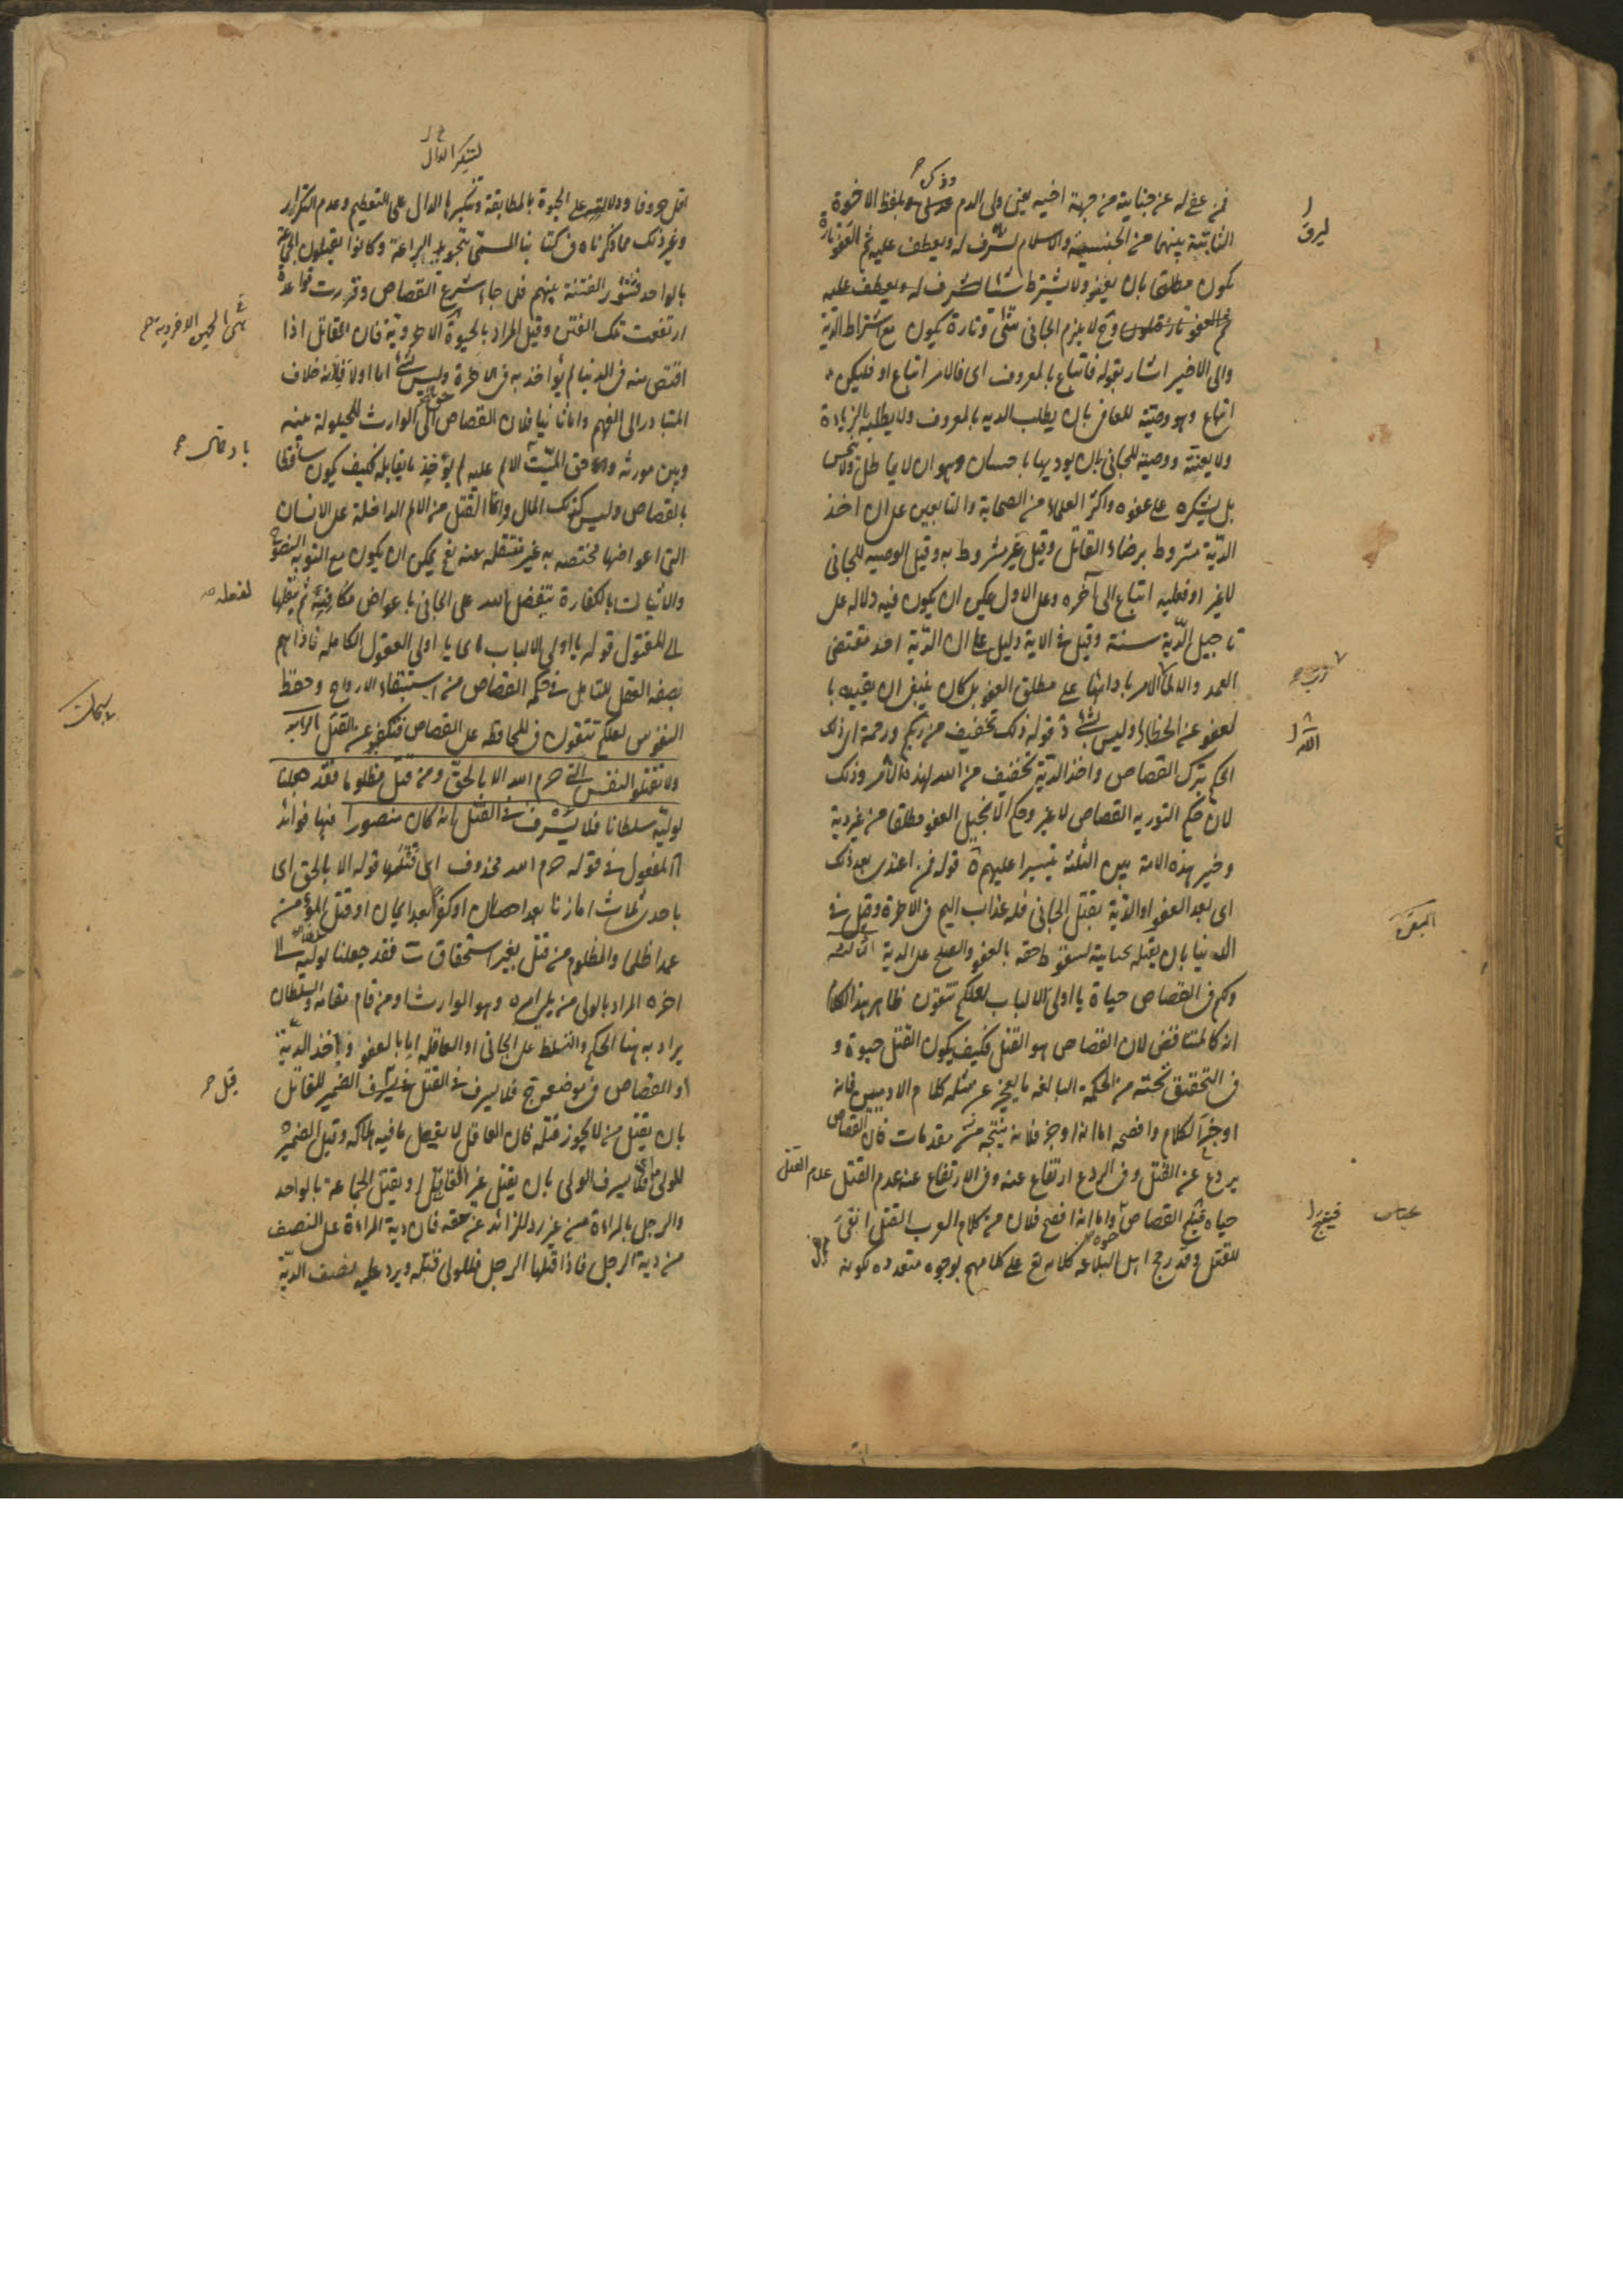 فمن عفى له عن جنايته من جهة اخيه يعنى ولى الدم وذكر بلفظ الاخوة
الثابتة بينهما من الجنسية والاسلام ليرق له ويعطف عليه ثم العفو تارة
يكون مطلقا بان يعفو ولا يشترط شيئا
وح لا يلزم الجانى شئ وتارة يكون مع اشتراط الدية
والى الاخير اشار بقوله فاتباع بالمعروف اى فالامر اتباع او فليكن
اتباع وهو وصيته للعافى بان يطلب الدية بالمعروف ولا يطلبه بالزيادة
ولا يعنته ووصية للجانى بان يوديها باحسان وهو ان لا يماطل ولا يبخس
بل يشكره على عفوه واكثر العلماء من الصحابة والتابعين على ان اخذ
الدية مشروط برضاء القاتل وقيل غير مشروط به وقيل الوصية للجانى
لا غير او فعليه اتباع الى آخره وعلى الاول يمكن ان يكون فيه دلالة على
تاجيل الدية سنة وقيل فى الاية دليل على ان الدية احد مقتضى
العمد والا لما رتب الامر بادائها على مطلق العفو بل كان ينبغى ان يقيده با
لعفو عن الخطاء وليس بشئ قوله ذلك تخفيف من ربكم ورحمة اى ذلك
الحكم بترك القصاص واخذ الدية تخفيف من الله لهذه الامة وذلك
لان حكم التورية القصاص لا غير وحكم الانجيل العفو مطلقا من غير دية
وخير هذه الامة بين الثلثة تيسيرا عليهم قوله فمن اعتدى بعد ذلك
اى بعد العفو او الدية بقتل الجانى فله عذاب اليم فى الاخرة وقيل فى
الدنيا بان يقتله لسقوط حقه بالعفو والصلح على الدية الثالثة
البقرة
ولكم فى القصاص حياة يا اولى الالباب لعلكم تتقون ظاهر هذا الكلام
انه كالمتناقض لان القصاص هو القتل فكيف يكون القتل حيوة و
فى التحقيق تحته من الحكمة البالغة ما يعجز عن مثله كلام الادميين فانه
اوجز الكلام وافصحه اما انه اوجز فلانه نتيجة مقدمات فان القصاص
يردع عن القتل وفى الردع ارتفاع عنه وفى الارتفاع عنه عدم القتل عدم القتل
حياة فينتج القصاص حيوة واما انه افصح فلان من كلام العرب القتل انفى
للقتل وقد رجح اهل البلاغة كلامه تع على كلامهم بوجوه متعددة كونه
لتنكير الدال
اقل حروفا ودلالته على الحيوة بالمطابقة وتنكيرها الدال على التعظيم وعدم التكرار
وغير ذلك مما ذكرناه فى كتابنا المسمى بتجويد البراعة وكانوا يقتلون الجماعة
بالواحد فتثور الفتنة بينهم فلما جاء شرع القصاص وقررت قواعده
ارتفعت تلك الفتن وقيل المراد بالحيوة الاخروية فان القاتل اذا
اقتص منه فى الدنيا لم يؤاخذ به فى الاخرة وليس بشئ اما اولا فلانه خلاف
المتبادر الى الفهم واما ثانيا فلان القصاص حق الوارث للحيلولة بينه
وبين مورثه واما حق الميت لالم عليه لم يؤخذ ما يقابله فكيف يكون ساقطا
بالقصاص وليس كذلك المال واما القتل من الالم الداخلة على الانسان
التى اعواضها مختصه به غير منتقله عنه نعم يمكن ان يكون مع التوبة النصوح
والاتيان بالكفارة يتفضل الله على الجانى باعواض مكافئة ثم ينقلها
الى المقتول قوله يا اولى الالباب اى يا اولى العقول الكاملة ناداهم
بصفة العقل للتامل فى حكم القصاص من استبقاء الارواح وحفظ
النفوس لعلكم تتقون فى المحافظة على القصاص فتكفوا عن القتل الرابعة
سبحان
ولا تقتلوا النفس التى حرم الله الا بالحق ومن قتل مظلوما فقد جعلنا
لوليه سلطانا فلا يسرف فى القتل انه كان منصورا فيها فوائد
المفعول فى قوله حرم الله محذوف اى قتلها قوله الا بالحق اى
باحدى ثلاث اما زنا بعد احصان او كفر بعد ايمان او قتل المؤمن
عمدا ظلما والمظلوم من قتل بغير استحقاق فقد جعلنا لوليه الى
اخره المراد بالولى من يلى امره وهو الوارث او من قام مقامه والسلطان
يراد به هنا الحكم والتسلط على الجانى او العاقلة اما بالعفو او باخذ الدية
او القصاص فى موضعه فلا يسرف فى القتل قيل الضمير للقاتل
بان يقتل من لا يجوز قتله فان العاقل لا يفعل ما فيه هلاكه وقيل الضمير
للولى اى فلا يسرف الولى بان يقتل غير القاتل او يقتل الجماعة بالواحد
والرجل بالمراءة من غير رد للزائد عن حقه فان دية المراءة على النصف
من دية الرجل فاذا قتلها الرجل فللولى قتله ويرد عليه نصف الدية